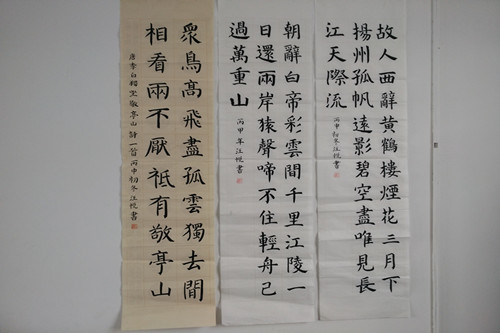 故人西辭黃鶴樓煙花三月下
揚州孤帆遠影碧空盡唯見長
江天際流
丙申初冬江悅書
朝辭白帝彩雲間千里江陵一
日還兩岸猿聲啼不住輕舟已
過萬重山
丙申年江悅書
衆鳥髙飛盡孤雲獨去閒
相看兩不厭祗有敬亭山
唐李白獨坐敬亭山詩一首丙申初冬江悅書